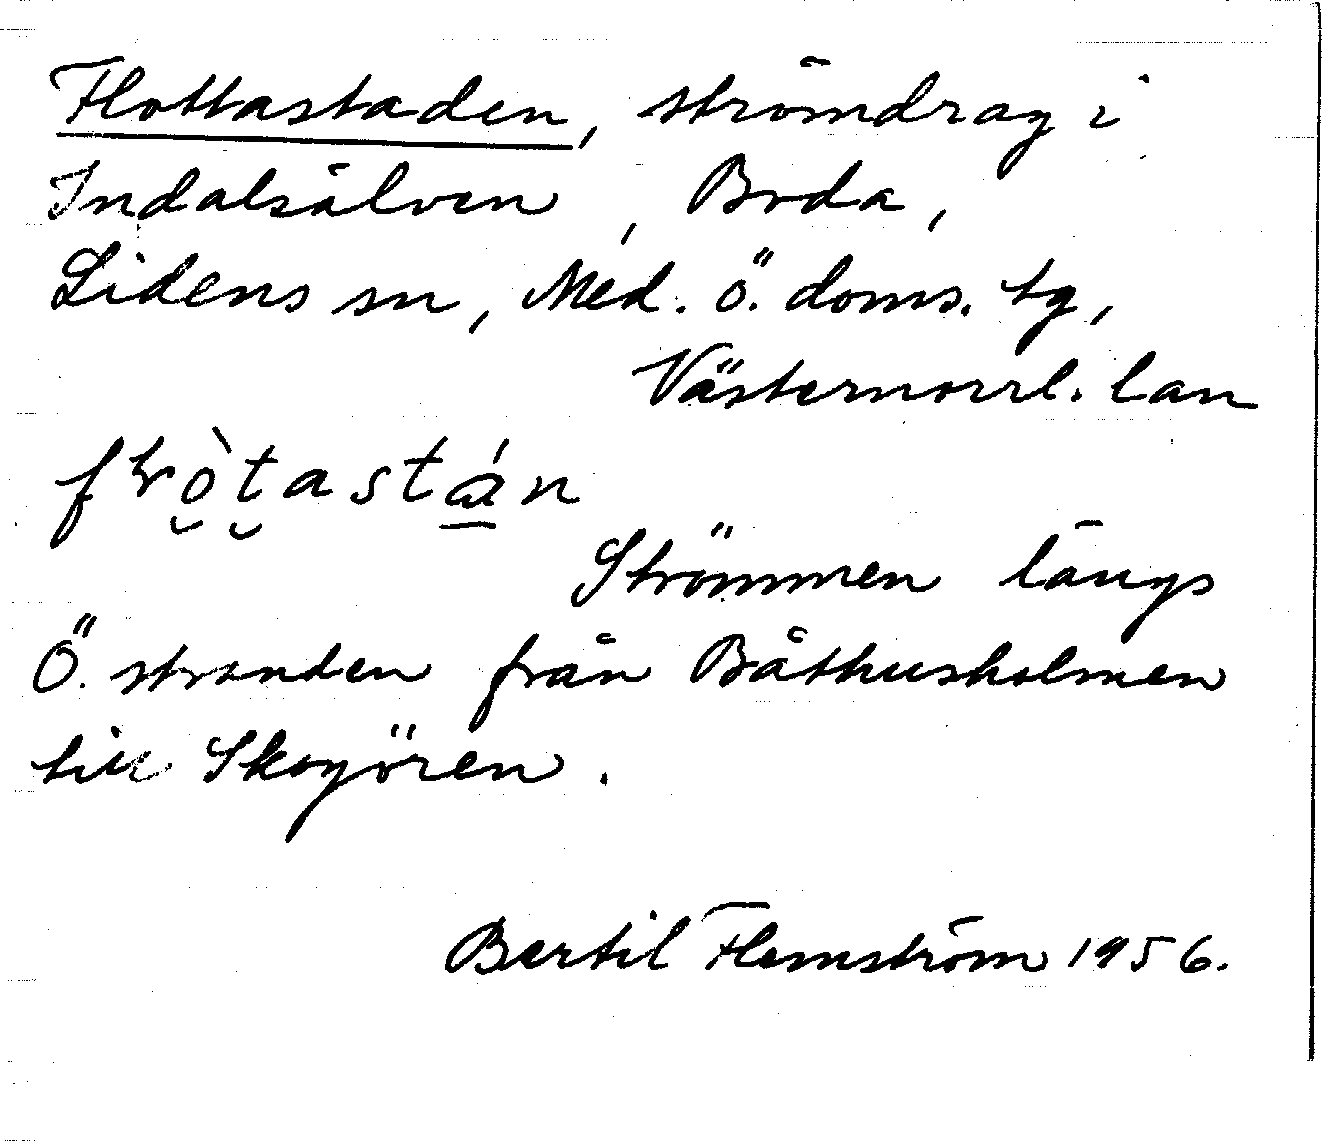 Flottastaden, strömdrag i
Indalsälven, Boda,
Lidens sn, Med. Ö. doms. tg,
Västernorrl. län
Strömmen längs
Ö. stranden från Båthusholmen
till Skogören.
Bertil Flemström 1956.